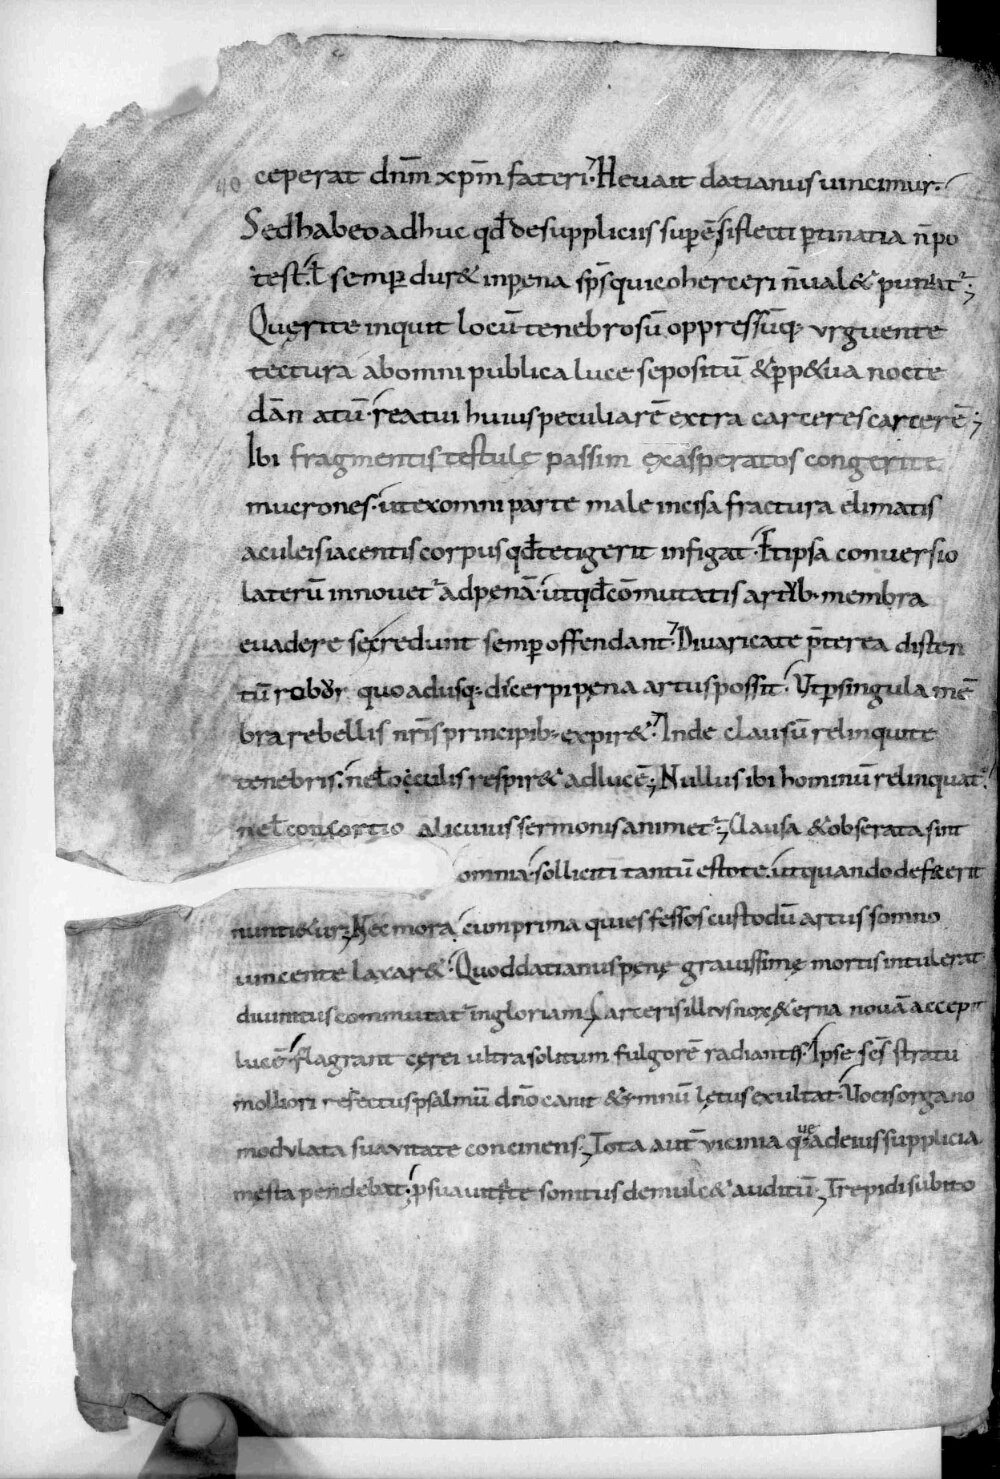 40
ceperat dnm̄ xp̄m fateri. Heu ait datianus uincimur.
Sed habeo adhuc qđ de suppliciis sup̄e. si flecti ptinatia n̄ po
test. ł semp dur& in pena sp̄s qui coherceri n̄ ual& puniat;
Querite inquit locū tenebrosū oppressūq; urguente
tectura ab omni publica luce sepositū & ppetua nocte
dānatū. reatui huius peculiarē extra carceres carcerē;
Ibi fragmentis testulę passim exasperatos congerite
mucrones. ut ex omni parte male incisa fractura elimatis
aculeis iacentis corpus qđ tetigerit infigat. Et ipsa conuersio
laterū innouet ad penā. ut qđ cōmutatis artib; membra
euadere se credunt semp offendant. Diuaricate p̄terea disten
tū robor quo adusq; discerpi pena artus possit. Ut p singula mē
bra rebellis nr̄is principib; expir&. Inde clausū relinquite
tenebris. ne ł oculis respir& ad lucē; Nullus ibi hominū relinquat.
ne ł consortio alicuius sermonis animet; Clausa & obserata sint
omnia. solliciti tantū estote. ut quando defecerit
nunti&ur; Nec mora cum prima quies fessos custodū artus somno
uincente laxar&. Quod datianus penę grauissimę mortis intulerat
diuinitus commutat in gloriam. Carceris illius nox &erna nouā accepit
lucē. flagrant cęrei ultra solitum fulgorē radiantes. Ipse scs̄ stratu
molliori refectus psalmū dn̄o canit & ymnū lętus exultat. Uocis organo
modulata suauitate concinens; Tota aut uicinia quę ad eius supplicia
męsta pendebat; p suauitate sonitus demulc& auditū; Trepidi subito